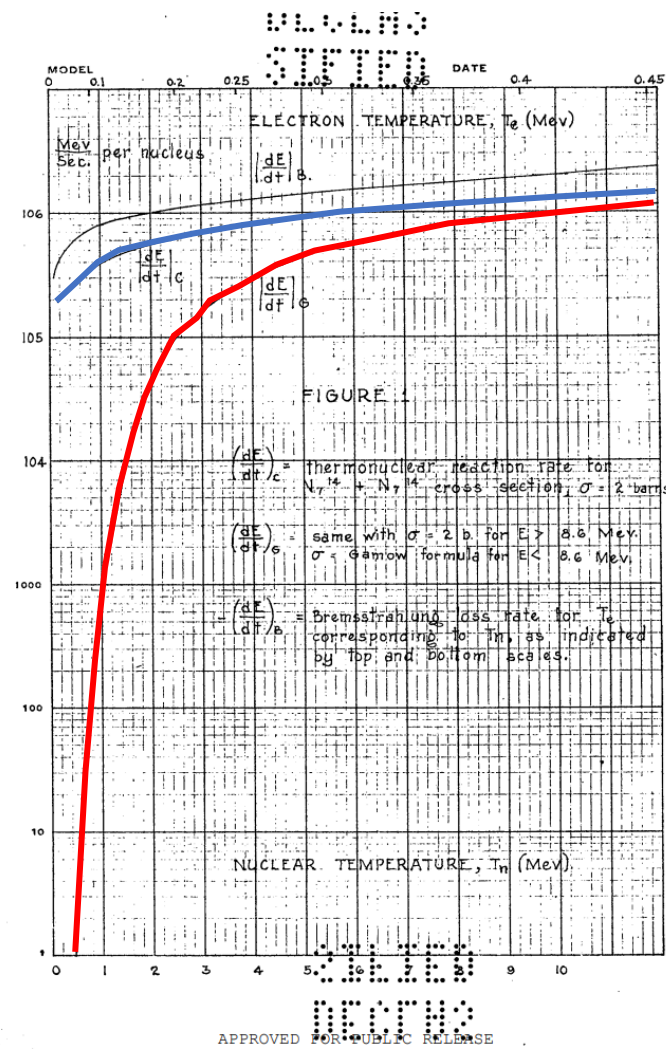 SIFIED
MODEL DATE
0 0.1 0.2 0.25 0.3 0.35 0.4 0.45
ELECTRON TEMPERATURE, Te (Mev)
Mev
Sec. per nucleus
|dE/dt|B.
106
|dE/dt|C
|dE/dt|G
105
FIGURE 1
104
(dE/dt)C = thermonuclear reaction rate for
N7^14 + N7^14 cross section, σ = 2 barns
(dE/dt)G = same with σ = 2 b. for E > 8.6 Mev.
σ = Gamow formula for E < 8.6 Mev.
1000
-(dE/dt)B = Bremsstrahlung loss rate for Te
corresponding to Tn, as indicated
by top and bottom scales.
100
10
NUCLEAR TEMPERATURE, Tn (Mev)
1
0 1 2 3 4 5 6 7 8 9 10
APPROVED FOR PUBLIC RELEASE